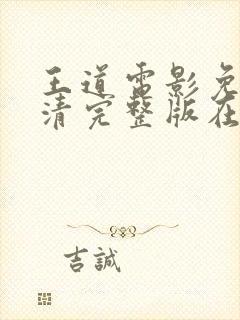 王道电影免
清完整版在
吉誠